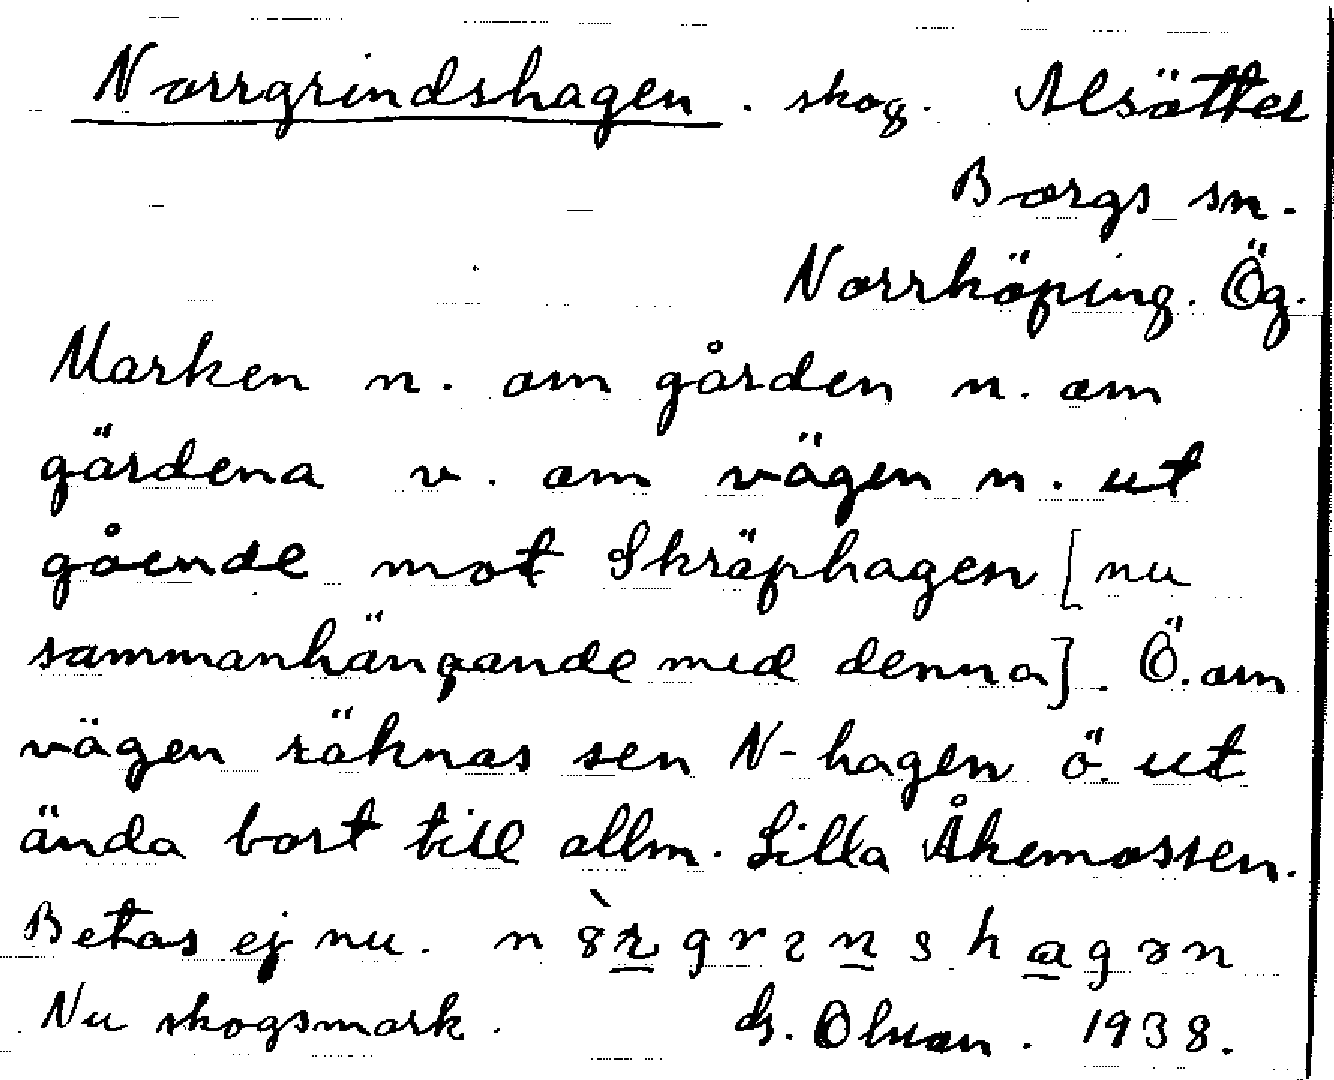 Norrgrindshagen. skog. Alsätter
Borgs sn.
Norrköping. Ög.
Marken n. om gården n. om
gärdena v. om vägen n. ut
gående mot Skräphagen [nu
sammanhängande med denna]. Ö. om
vägen räknas sen N-hagen ö. ut
ända bort till allm. Lilla Åkemossen.
Betas ej nu.
Nu skogsmark. Olsson. 1938.